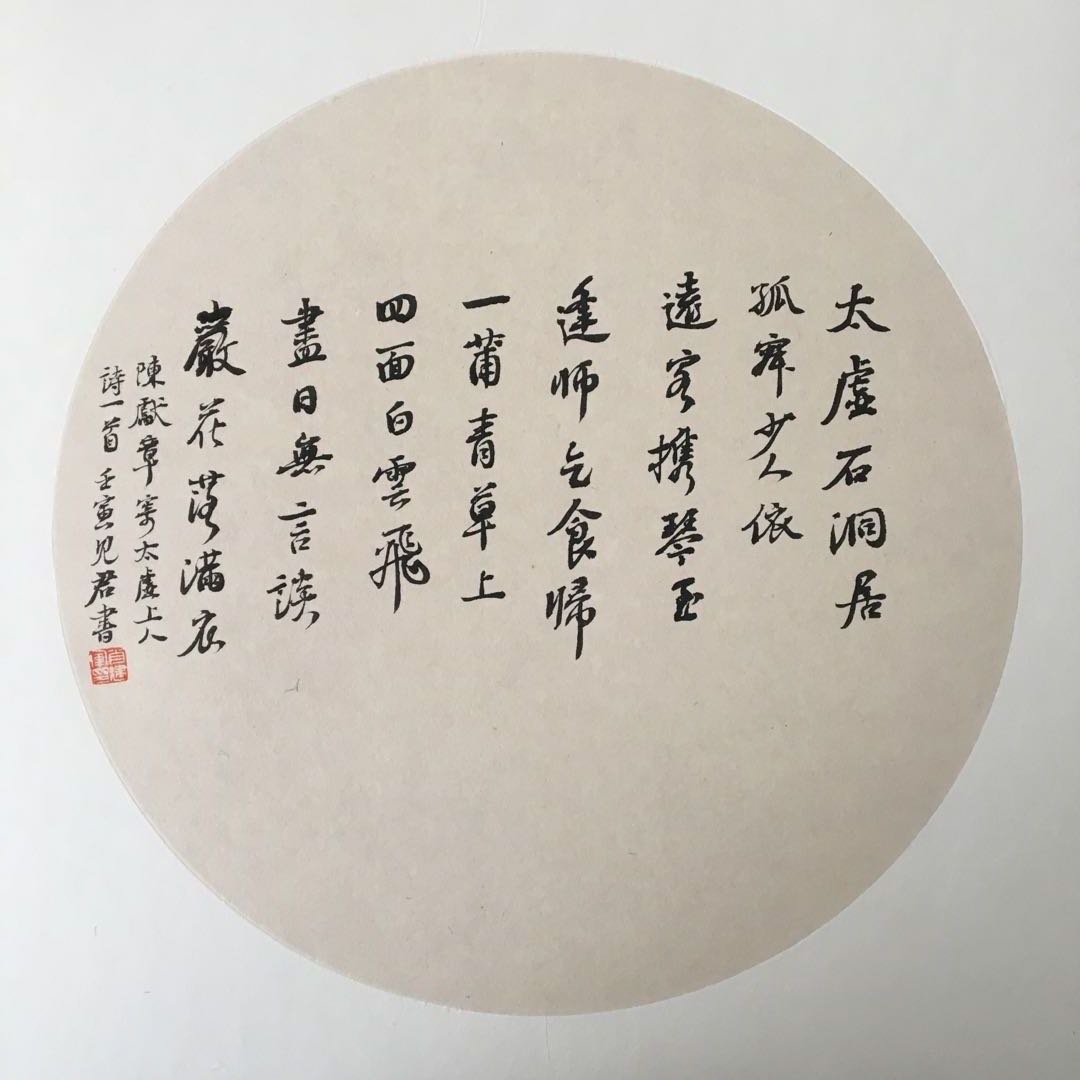 太虛石洞居
孤寂少人依
遠客攜琴至
逢師乞食歸
一蒲青草上
四面白雲飛
盡日無言談
巖花落滿衣
陳獻章寄太虛上人
詩一首 壬寅 君書